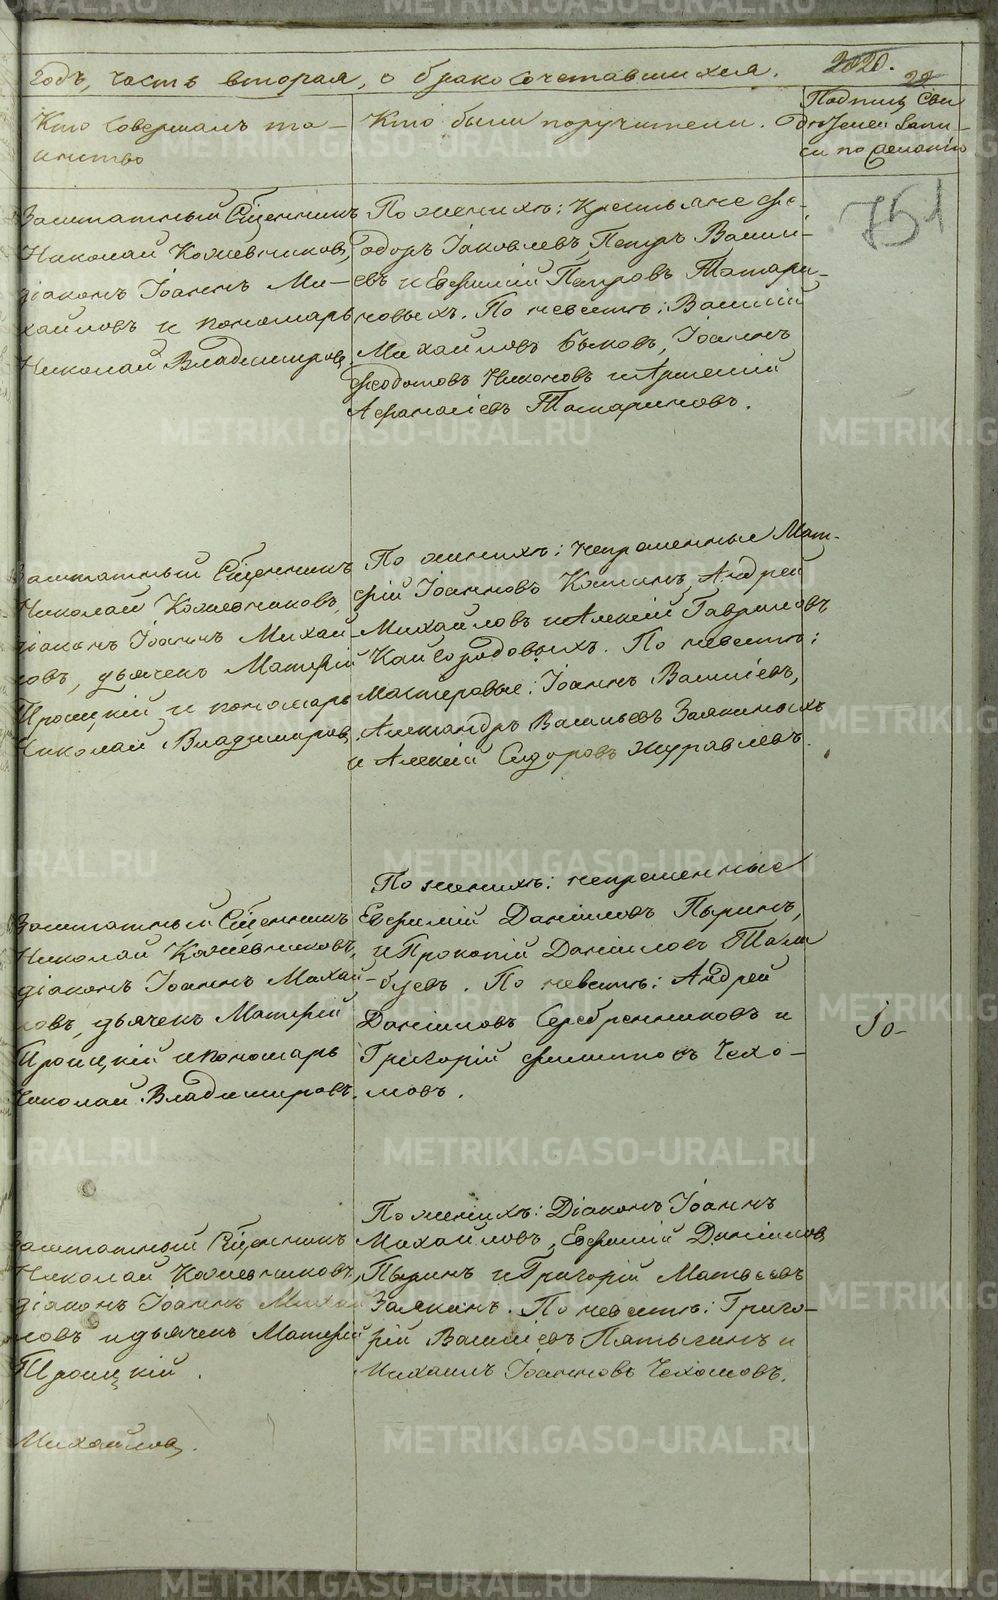 годъ, часть вторая, о бракосочетавшихся.
22
Кто совершалъ та-
инство
Кто были поручители.
Подпись сви
дѣтелей запи-
си по желанію
751
Заштатный Сщенникъ
Николай Кожевниковъ,
діаконъ Іоаннъ Ми-
хайловъ и пономарь
Николай Владимировъ
По женихѣ: крестьяне Ѳе-
одоръ Іаковлевъ, Петръ Васил-
евъ и Евфимій Петровъ Татари-
новыхъ. По невестѣ: Василій
Михайловъ Быковъ, Іоаннъ
Ѳеодотовъ Никоновъ и Арсеній
Афанасіевъ Татариновъ.
Заштатный Сщенникъ
Николай Кожевниковъ,
діаконъ Іоаннъ Михай
ловъ, дьячекъ
Троицкій и пономарь
Николай Владимировъ
По женихѣ: непременные
Іоанновъ Андрей
Михайловъ и Алексій Гавриловъ
Кайгородовыхъ. По невестѣ:
мастеровые: Іоаннъ Василіевъ,
Александръ Васильевъ Заякиныхъ
и Алексій Сидоровъ Журавлевъ.
Заштатный Сщенникъ
Николай Кожевниковъ,
діаконъ Іоаннъ Михай
ловъ, дьячекъ
Троицкій и пономарь
Николай Владимировъ.
По женихѣ: непременные
Евфимій Даніиловъ Пыринъ,
и Прокопій Даніиловъ
По невестѣ: Андрей
Даніиловъ Серебренниковъ и
Григорій Филиповъ Чехо-
мовъ.
Заштатный Сщенникъ
Николай Кожевниковъ,
діаконъ Іоаннъ Михай
ловъ и дьячекъ
Троицкій.
По женихѣ: Діаконъ Іоаннъ
Михайловъ, Евфимій Даніиловъ
Пыринъ и Григорій Матвеевъ
Заякинъ. По невестѣ: Григо-
рій Василіевъ Пятыгинъ и
Михаилъ Іоанновъ Чехомовъ.
Михайловъ.
METRIKI.GASO-URAL.RU